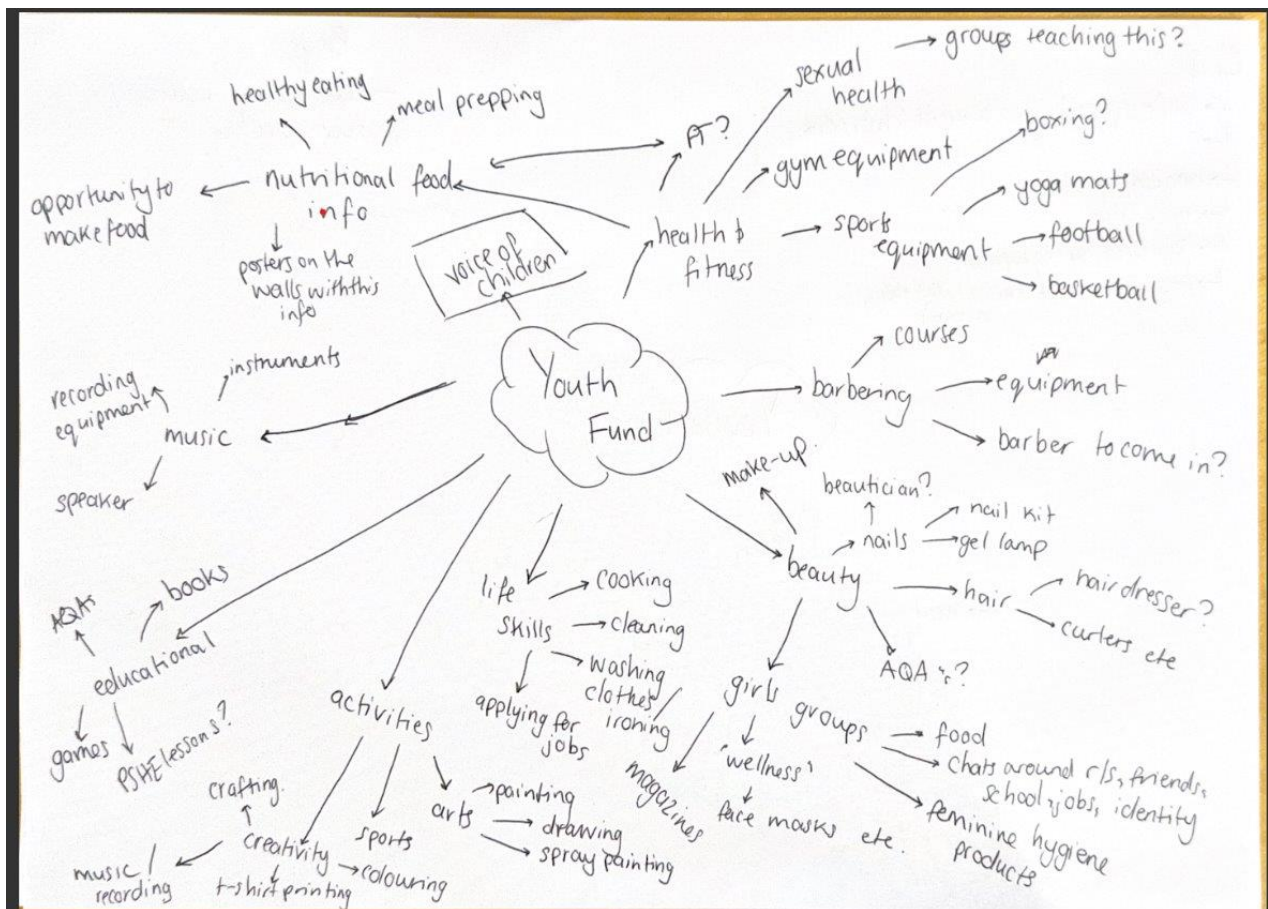 Youth
Fund
voice of
children
health &
fitness
PT?
sexual
health
groups teaching this?
gym equipment
sports
equipment
boxing?
yoga mats
football
basketball
nutritional food
info
healthy eating
meal prepping
opportunity to
make food
posters on the
walls with this
info
barbering
courses
equipment
barber to come in?
beauty
make-up.
nails
beautician?
nail kit
gel lamp
hair
hairdresser?
curlers etc
AQA's?
girls groups
food
chats around r/s, friends,
school, jobs, identity
feminine hygiene
products
'wellness'
face masks etc.
magazines
life
skills
cooking
cleaning
washing
clothes/
ironing
applying for
jobs
activities
arts
painting
drawing
spray painting
sports
creativity
crafting.
colouring
t-shirt printing
music/
recording
educational
AQAs
books
games
PSHE lessons?
music
instruments
recording
equipment
speaker